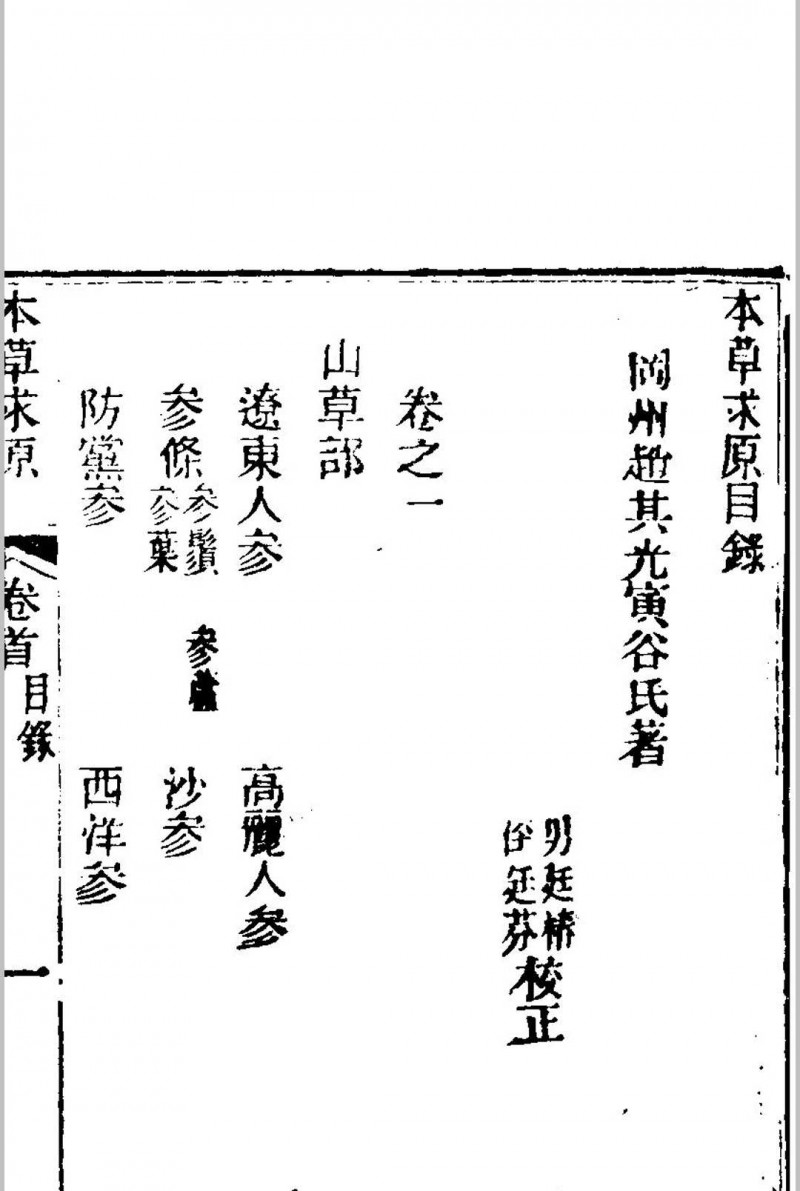 本草求原目錄
岡州趙其光寅谷氏著
男廷椿
侄廷芬
校正
卷之一
山草部
遼東人參
高麗人參
參條
參鬚
參葉
參蘆
沙參
防黨參
西洋參
本草求原
卷首
目錄
一